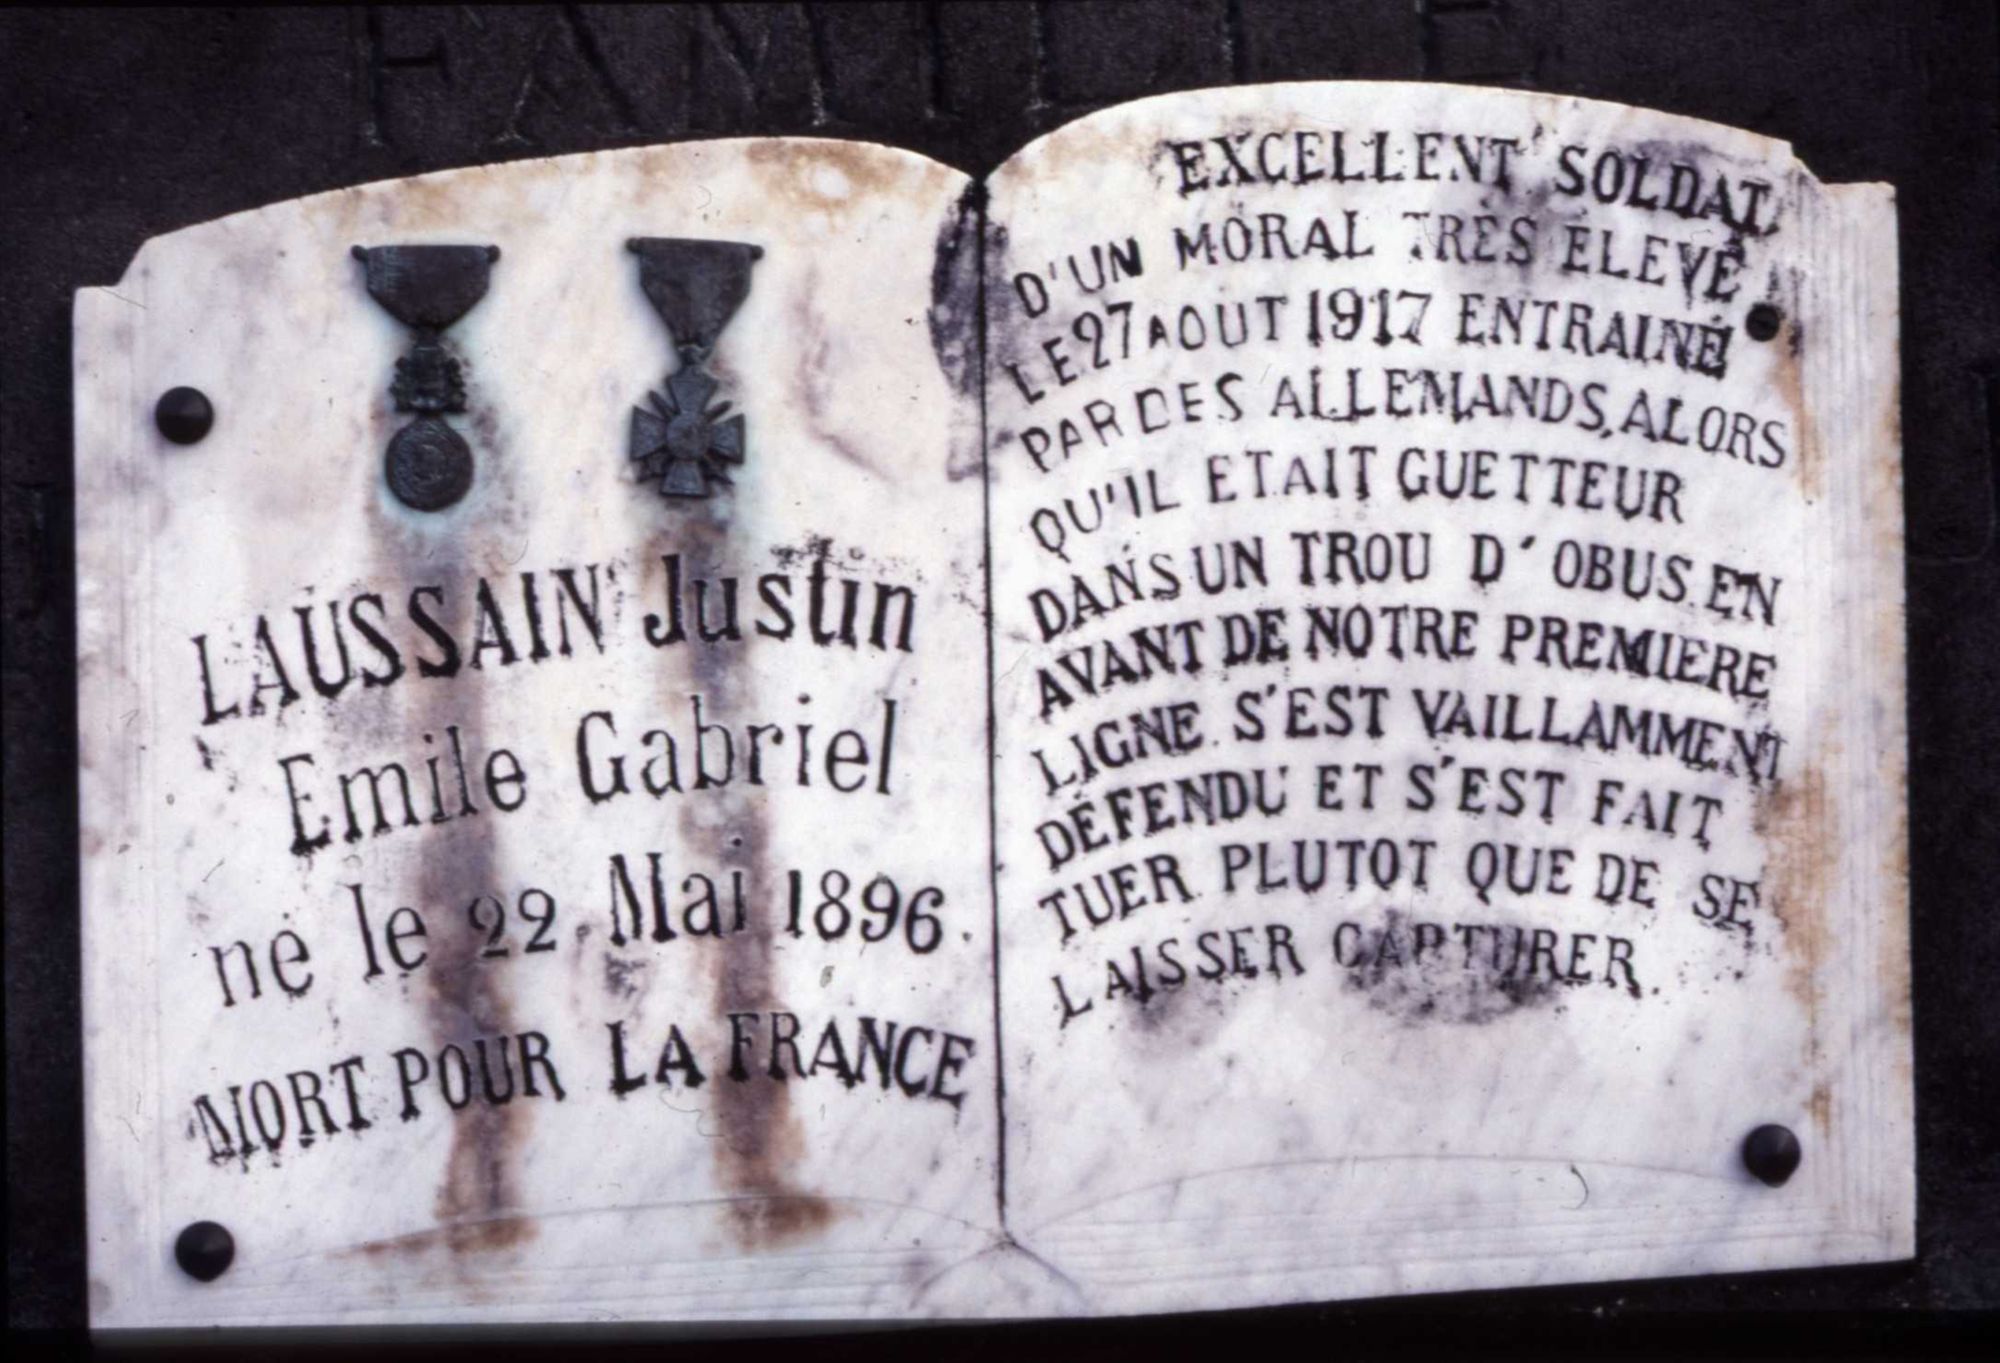 FAMILLE
LAUSSAIN Justin
Emile Gabriel
né le 22 Mai 1896.
MORT POUR LA FRANCE
EXCELLENT SOLDAT,
D'UN MORAL TRÈS ÉLEVÉ
LE 27 AOUT 1917 ENTRAINÉ
PAR DES ALLEMANDS, ALORS
QU'IL ETAIT GUETTEUR
DANS UN TROU D'OBUS EN
AVANT DE NOTRE PREMIERE
LIGNE S'EST VAILLAMMENT
DÉFENDU ET S'EST FAIT
TUER PLUTOT QUE DE SE
LAISSER CAPTURER.